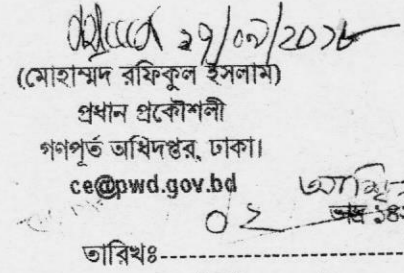 (মোহাম্মদ রফিকুল ইসলাম)
প্রধান প্রকৌশলী
গণপূর্ত অধিদপ্তর, ঢাকা।
ce@pwd.gov.bd
০২
তারিখঃ-----------------